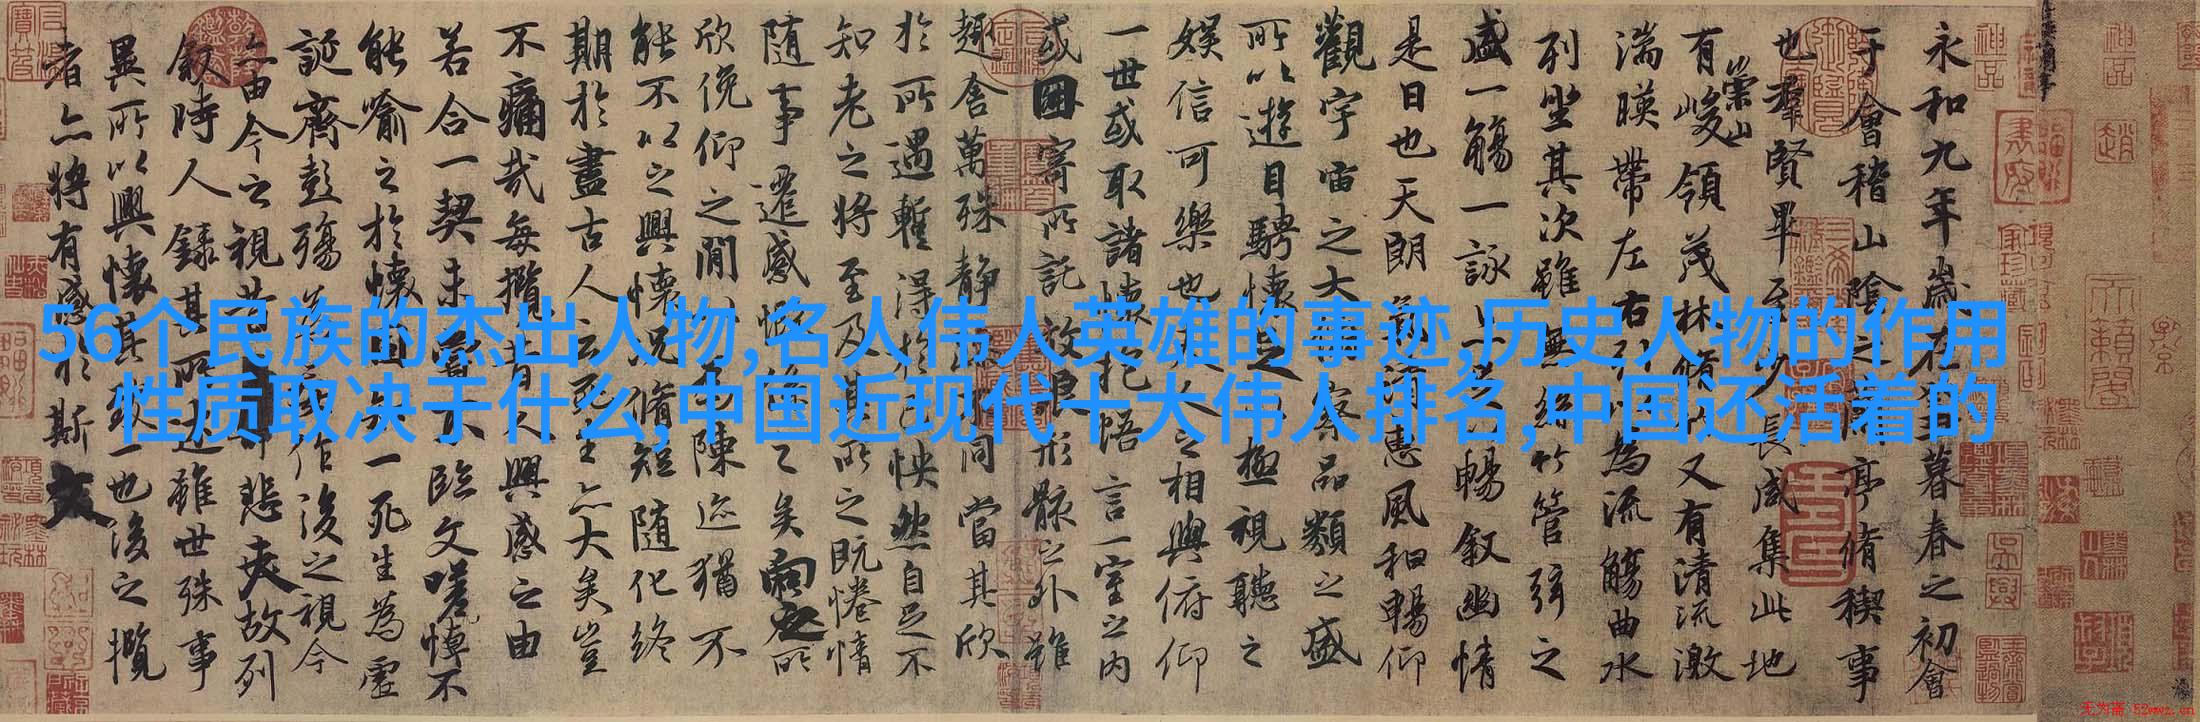 56个民族的杰出人物,名人伟人英雄的事迹,历史人物的作用
性质取决于什么,中国近现代十大伟人排名,中国还活着的
永和九年歲在癸丑暮春之初會
于會稽山陰之蘭亭脩稧事
也羣賢畢至少長咸集此地
有崇山峻領茂林脩竹又有清流激
湍暎帶左右引以為流觴曲水
列坐其次雖無絲竹管弦之
盛一觴一詠亦足以暢敘幽情
是日也天朗氣清惠風和暢仰
觀宇宙之大俯察品類之盛
所以遊目騁懷足以極視聽之
娛信可樂也夫人之相與俯仰
一世或取諸懷抱悟言一室之內
或因寄所託放浪形骸之外雖
趣舍萬殊静躁不同當其欣
於所遇蹔得於己怏然自足不
知老之將至及其所之既惓情
隨事遷感慨係之矣向之所
欣俛仰之閒以為陳迹猶不
能不以之興懷況脩短隨化終
期於盡古人云死生亦大矣豈
不痛哉每攬昔人興感之由
若合一契未嘗不臨文嗟悼不
能喻之於懷固知一死生為虛
誕齊彭殤為妄作後之視今
亦由今之視昔悲夫故列
敘時人錄其所述雖世殊事
異所以興懷其致一也後之攬
者亦將有感於斯文